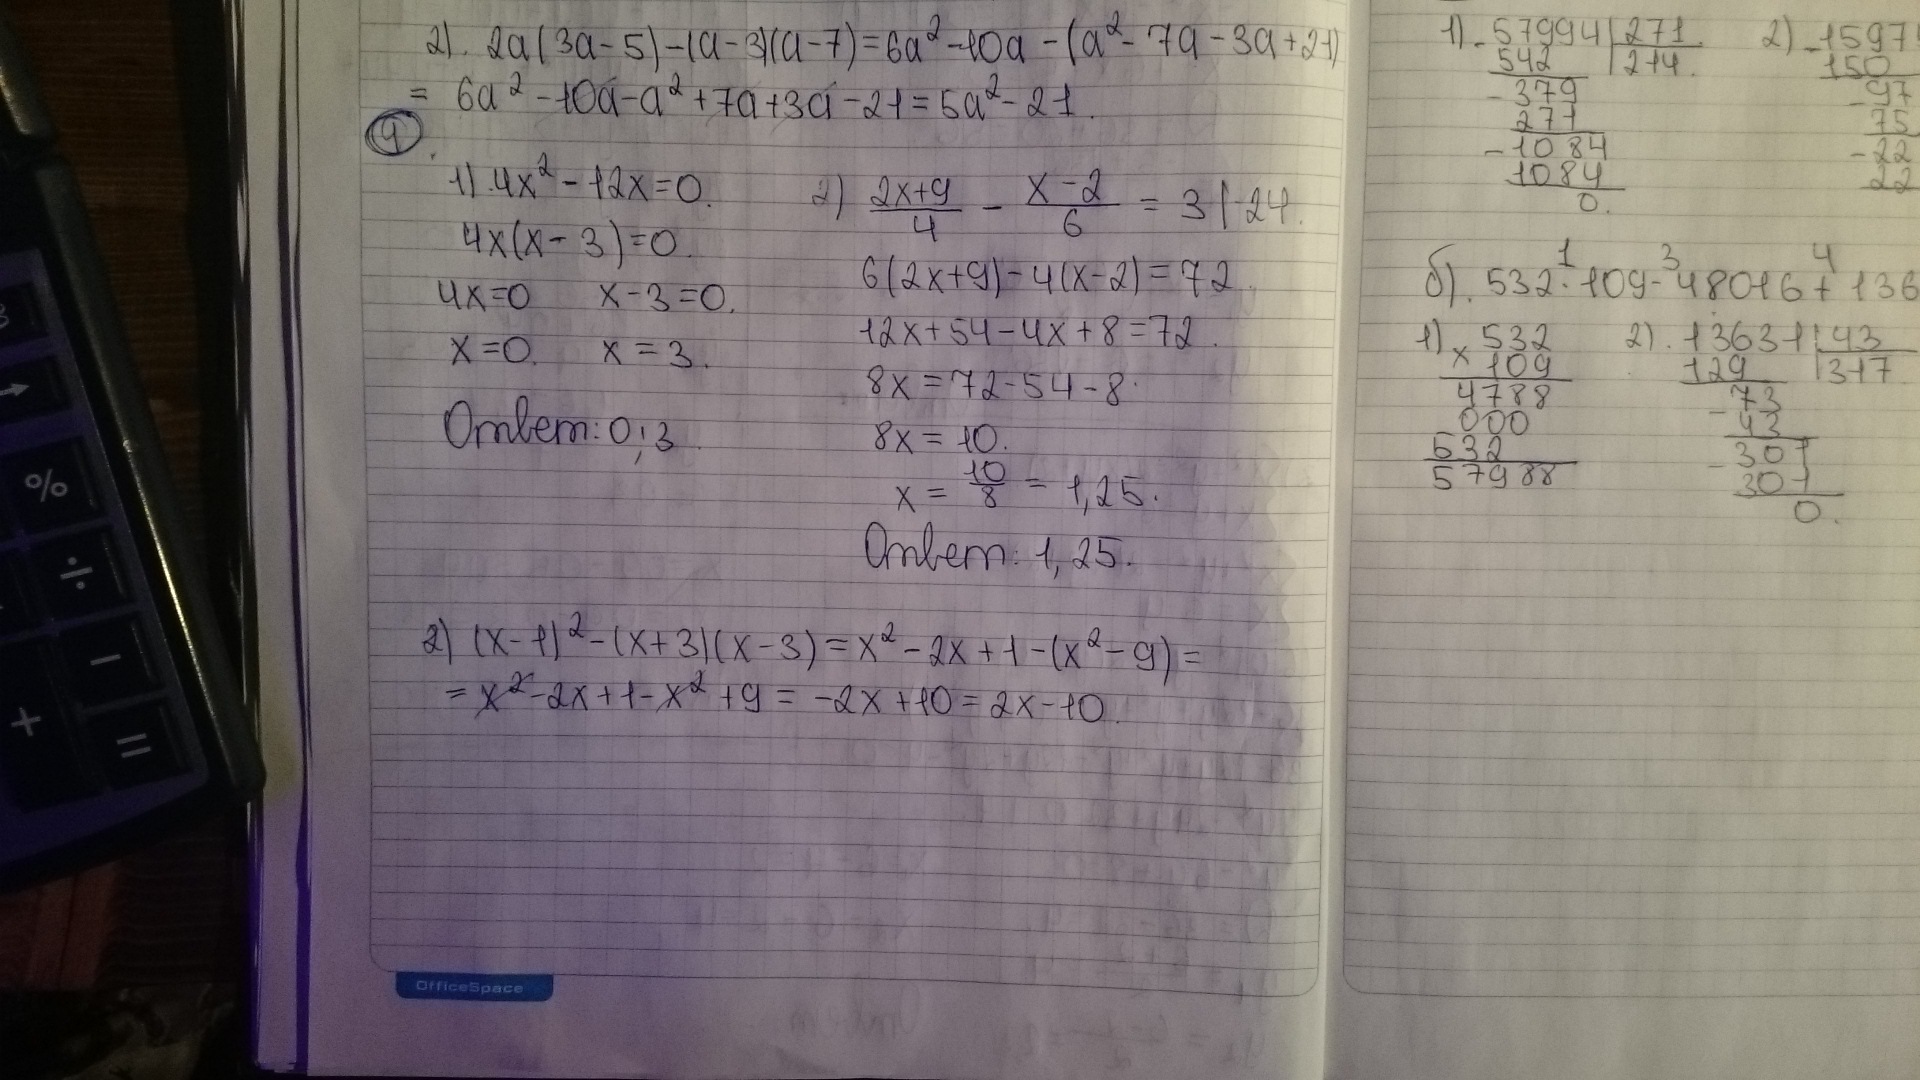 2). 2a(3a-5)-(a-3)(a-7)=6a²-10a-(a²-7a-3a+21)
= 6a²-10a-a²+7a+3a-21=5a²-21.
9.
1) 4x²-12x=0.
4x(x-3)=0.
4x=0 x-3=0.
x=0. x=3.
Ответ: 0;3.
2) \frac{2x+9}{4} - \frac{x-2}{6} = 3 |·24.
6(2x+9)-4(x-2)=72.
12x+54-4x+8=72.
8x=72-54-8.
8x=10.
x = \frac{10}{8} = 1,25.
Ответ: 1,25.
2) (x-1)²-(x+3)(x-3)=x²-2x+1-(x²-9)=
=x²-2x+1-x²+9=-2x+10=2x-10.
OfficeSpace
% ÷ - + = →
1) - 57994 | 271
542 | 214.
- 379
271
- 1084
1084
0.
2) - 1597
150
- 97
75
- 22
22
б). 532 · 109 - 48016 + 136
1 3 4
1) × 532
109
4788
000
532
57988
2). 13631 | 43
129 | 317
- 73
43
- 301
301
0.